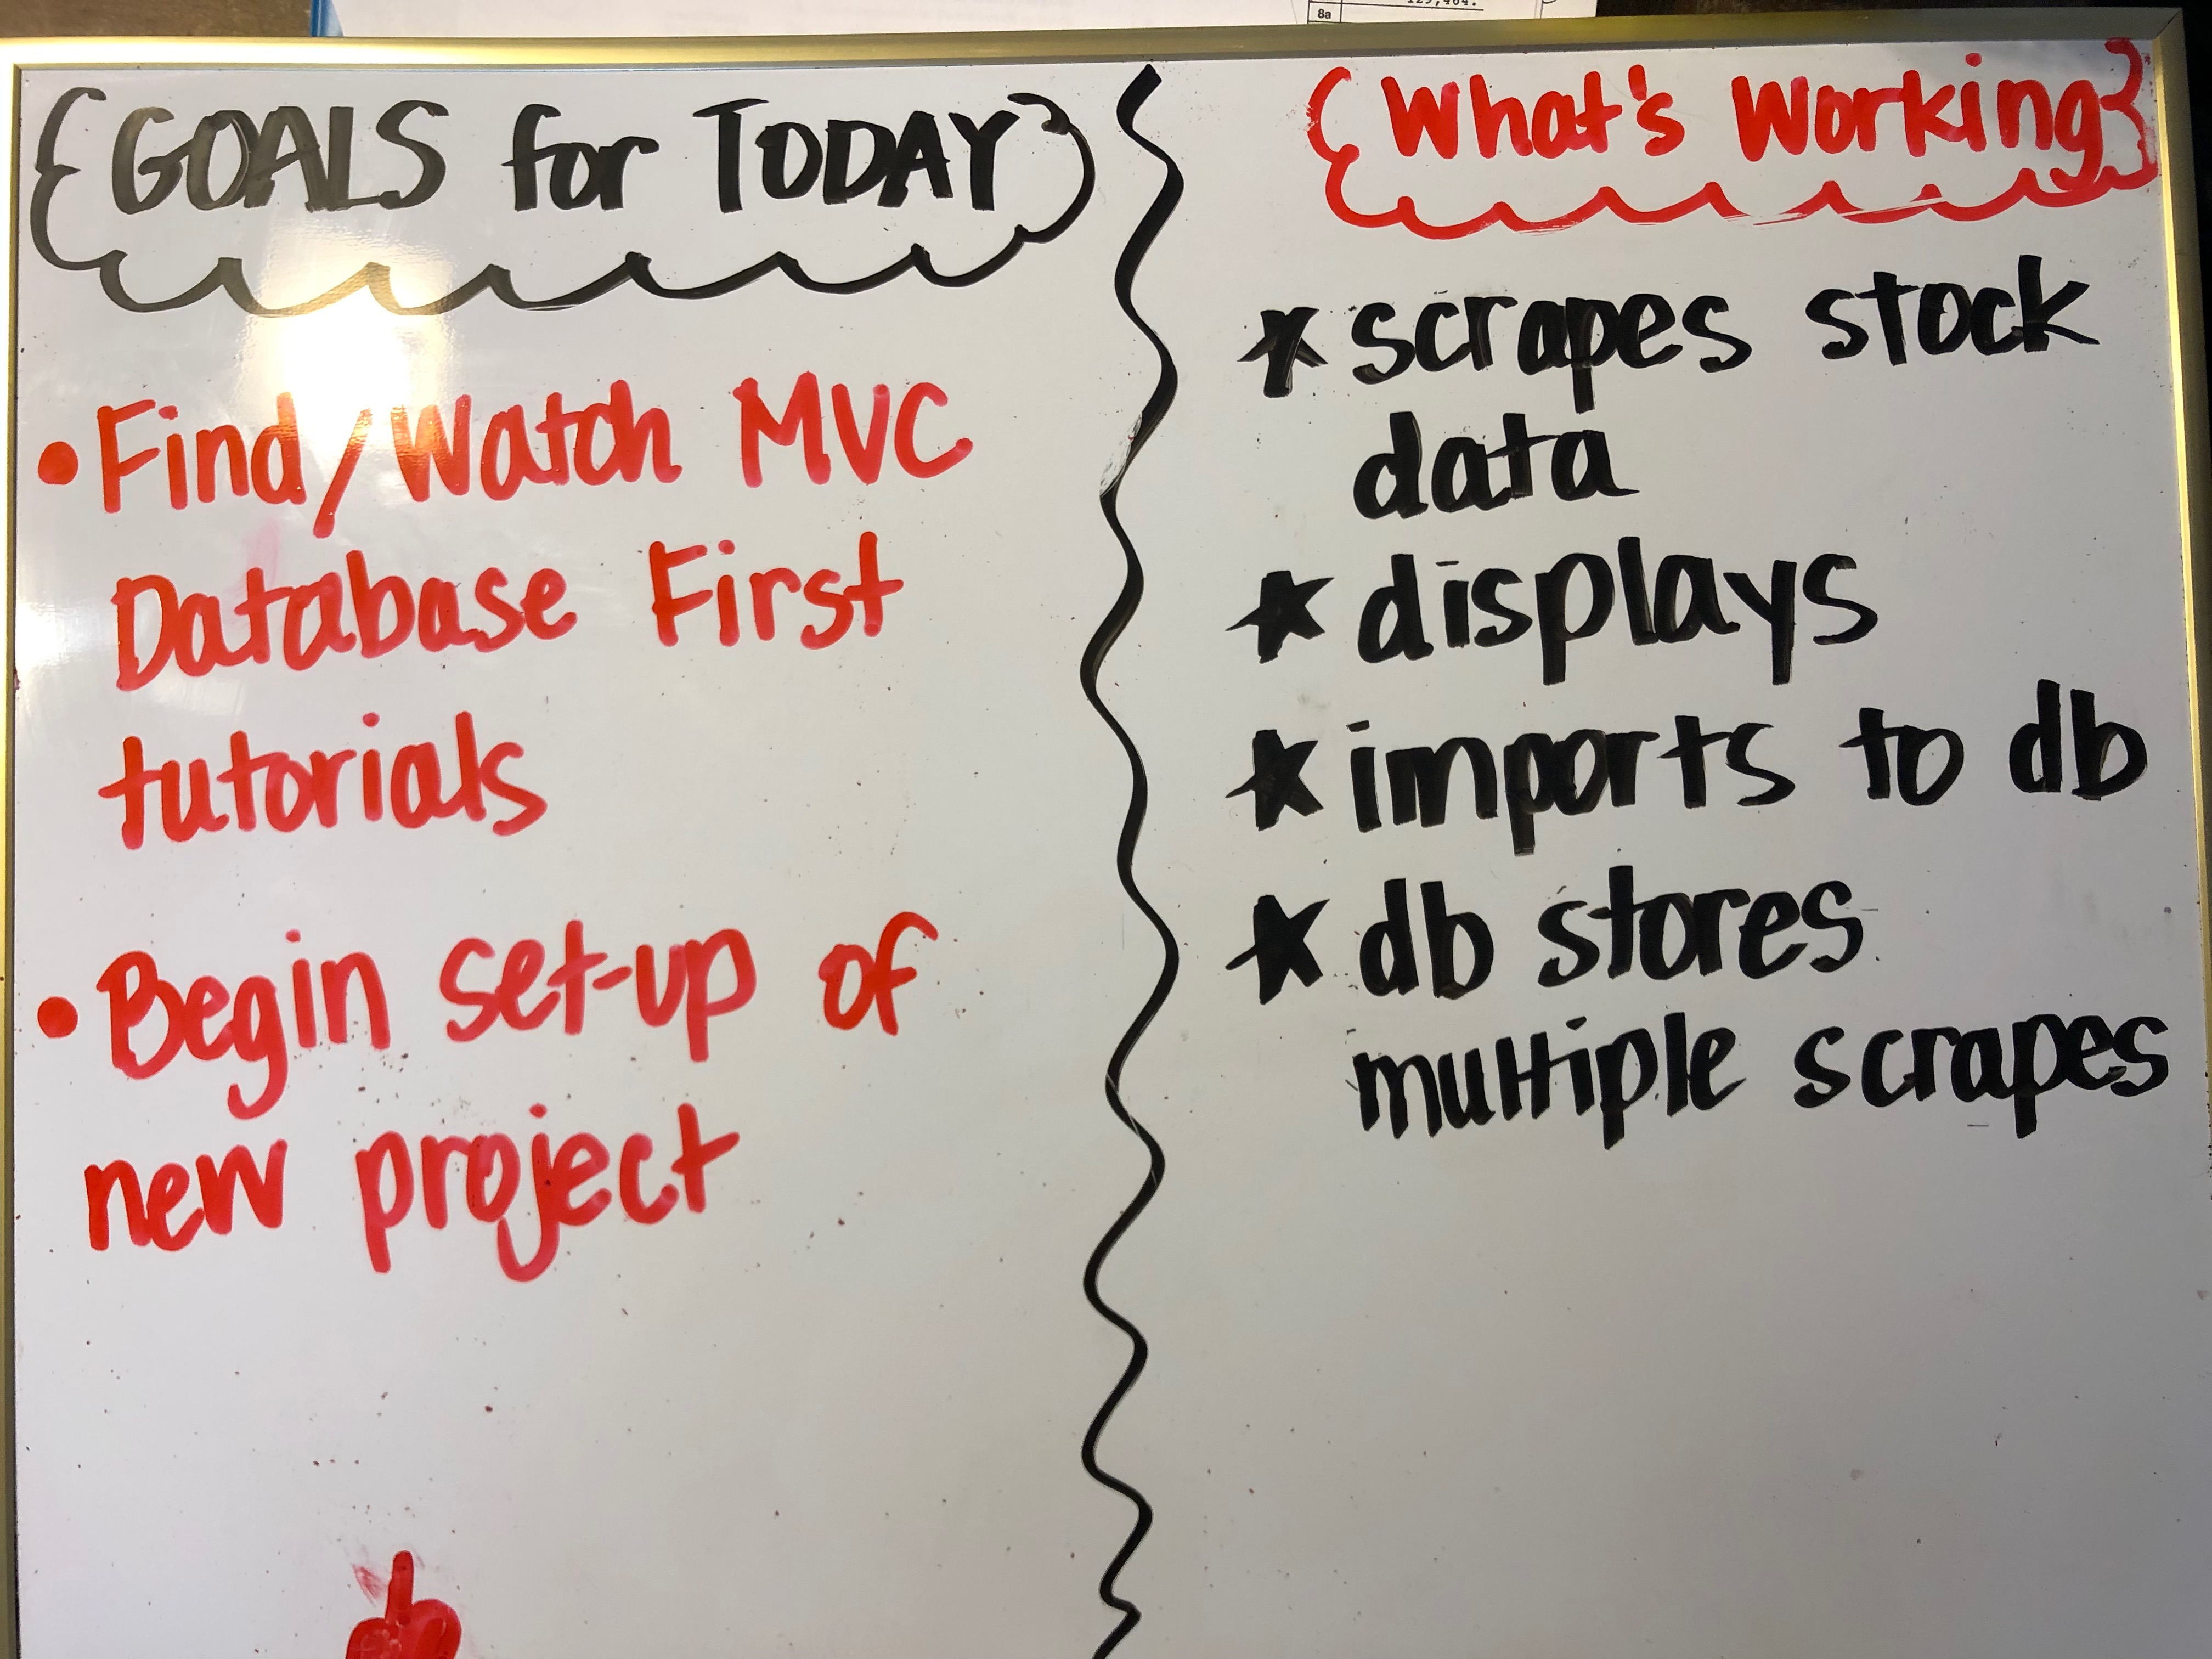 {GOALS for TODAY}
• Find/Watch MVC
Database First
tutorials
• Begin set-up of
new project
{What's Working}
* scrapes stock
data
★ displays
★ imports to db
★ db stores
multiple scrapes
8a